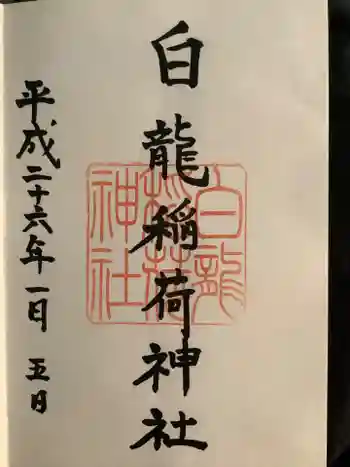 白龍稲荷神社
平成二十六年一日五日
白龍
稲荷
神社